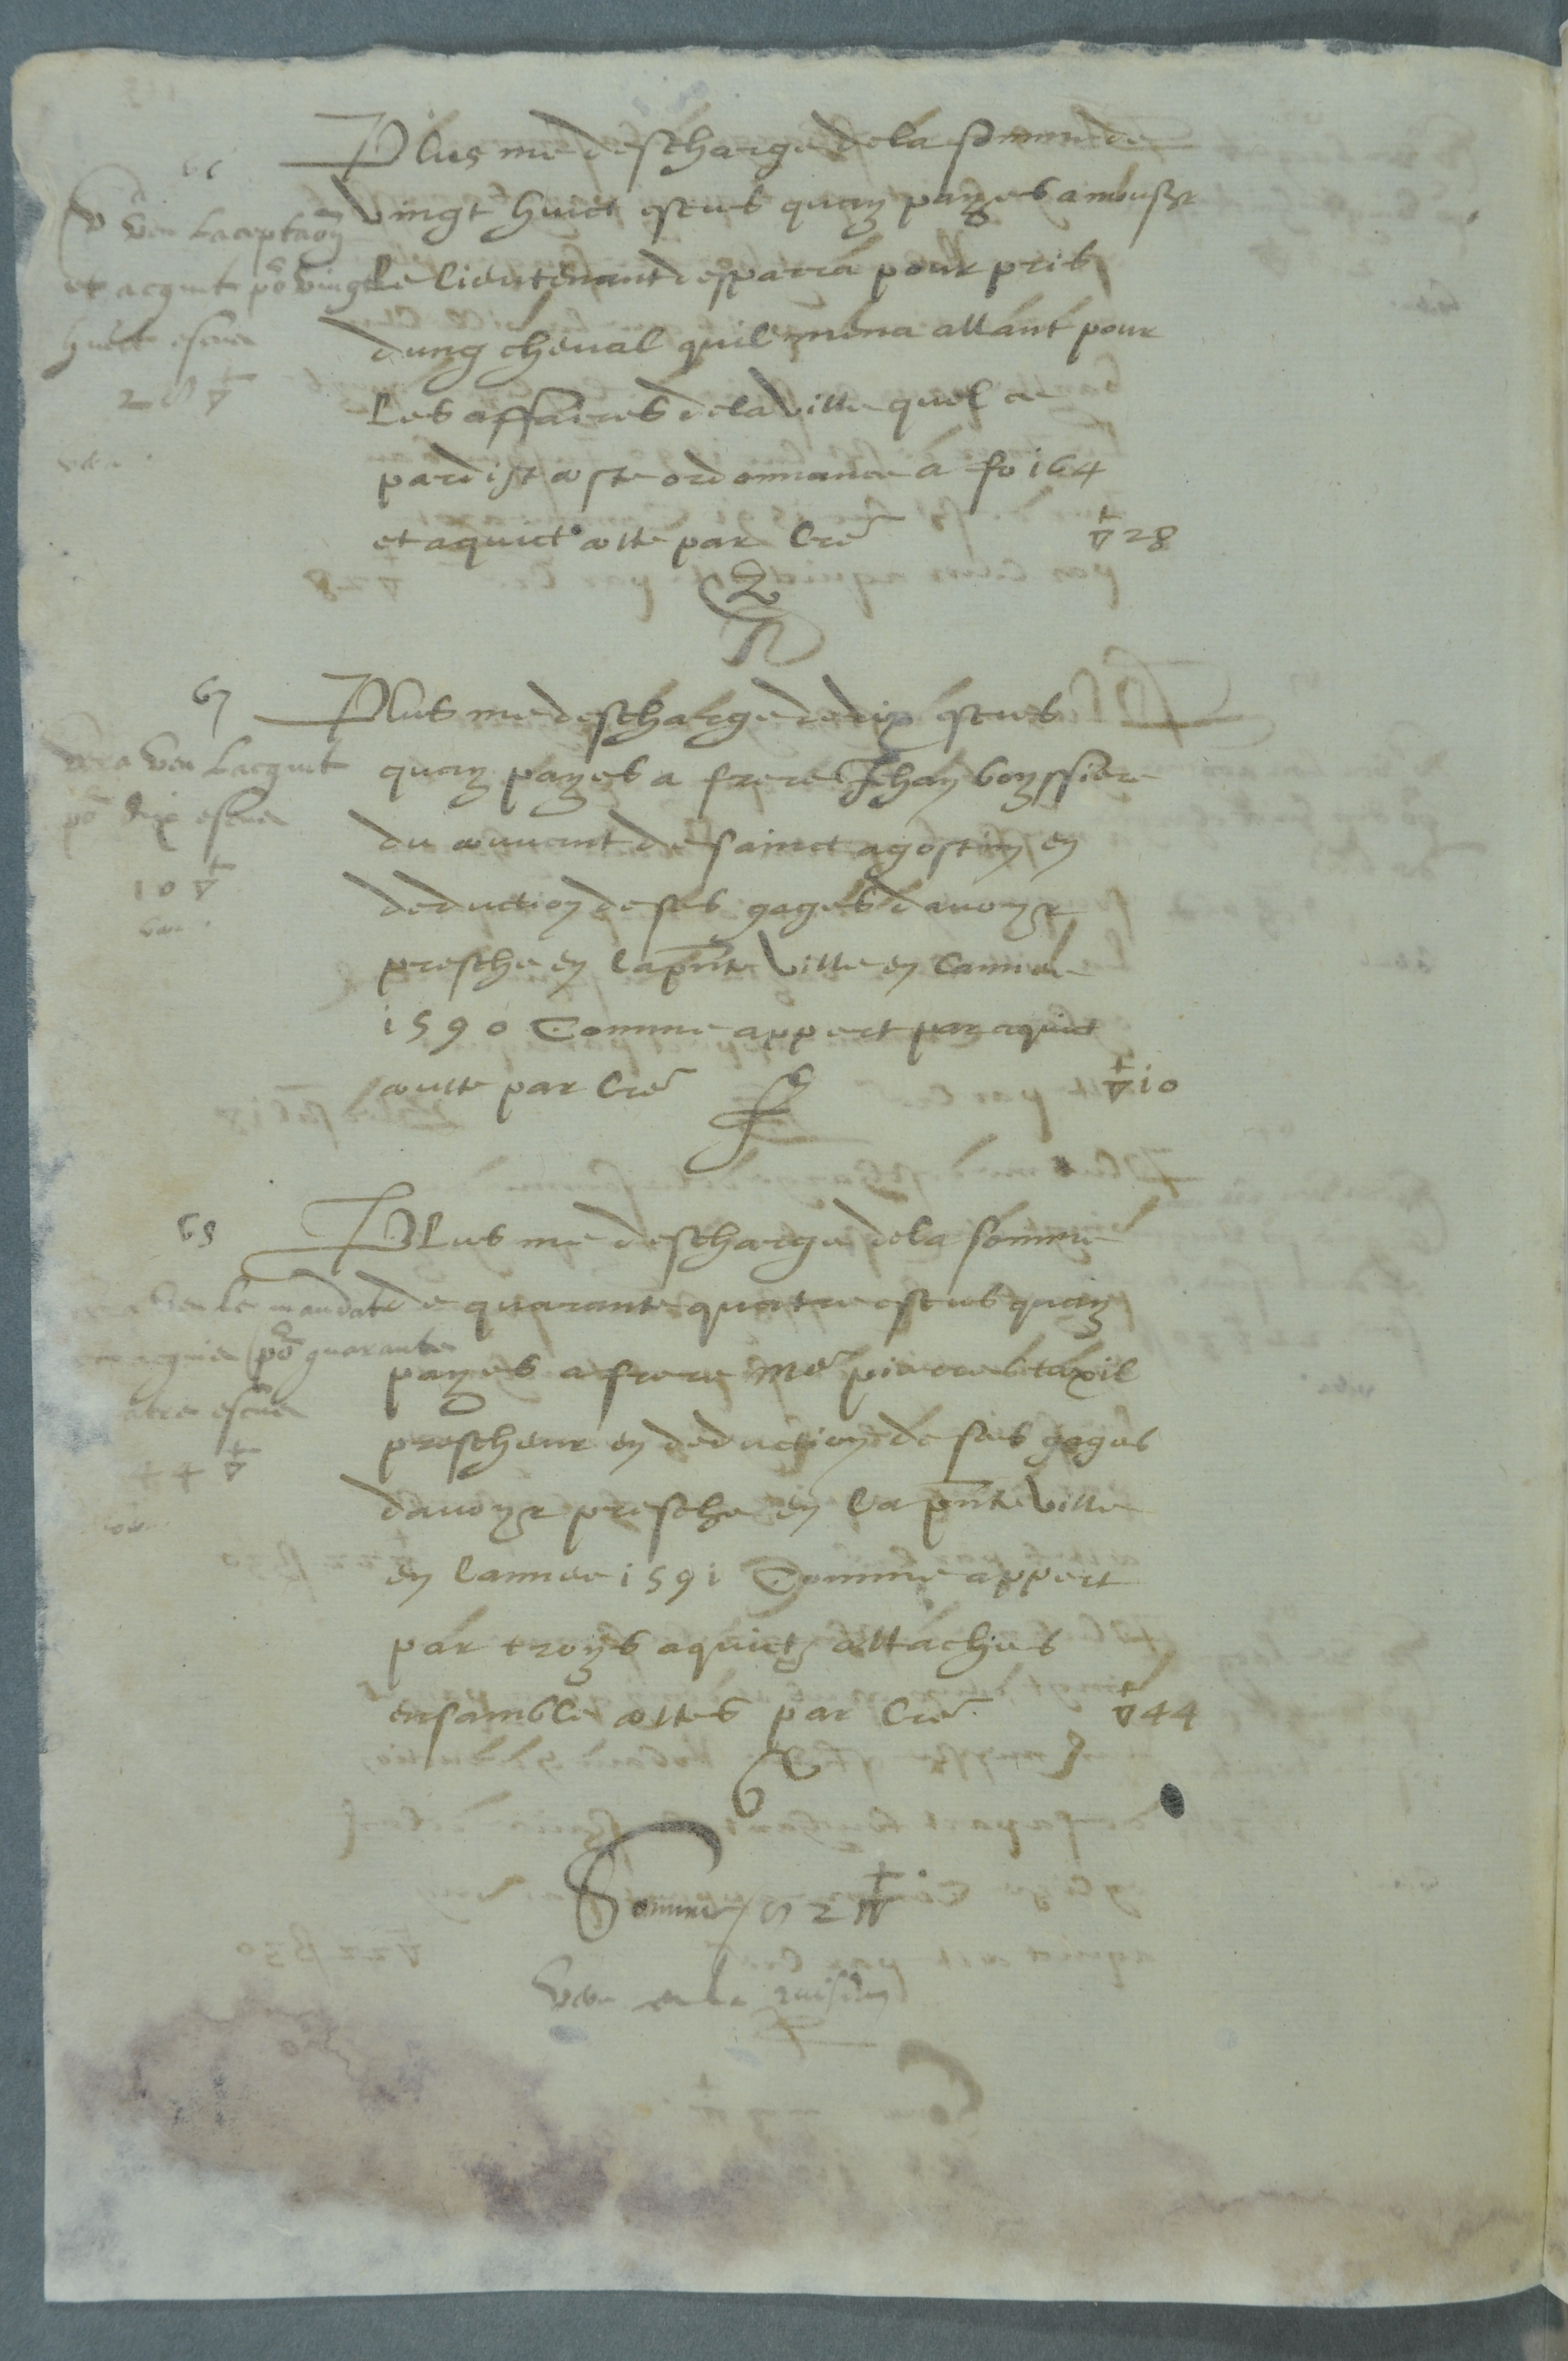 66
Plus me descharge de la somme de
vingt huict escus quay payes a monsr
le lieutenant desparra pour pris
dung cheval quil mena allant pour
les affaires de la ville quel ce
perdist coste ordonnance a fo 164
et aquict cotte par lre ▽28
veu lacceptaon
et acquit po vingt
huict escus
28 ▽
67
Plus me descharge de dix escus
quay payes a frere Jhan boyssiere
du couvent de sainct agostin en
deduction de ses gages davoyr
presche en la pnte ville en lannee
1590 Comme appert par aquict
cotte par lre ▽10
vera veu lacquit
po dix escus
10 ▽
68
Plus me descharge de la somme
de quarante quatre escus quay
payes a frere me pierre taxil
prescheur en deduction de ses gages
davoyr presche en la pnte ville
en lannee 1591 Comme appert
par troys aquictz attaches
ensamble cottes par lre ▽44
veu le mandat
acquis po quarante
atre escus
44 ▽
Somme 82 ▽